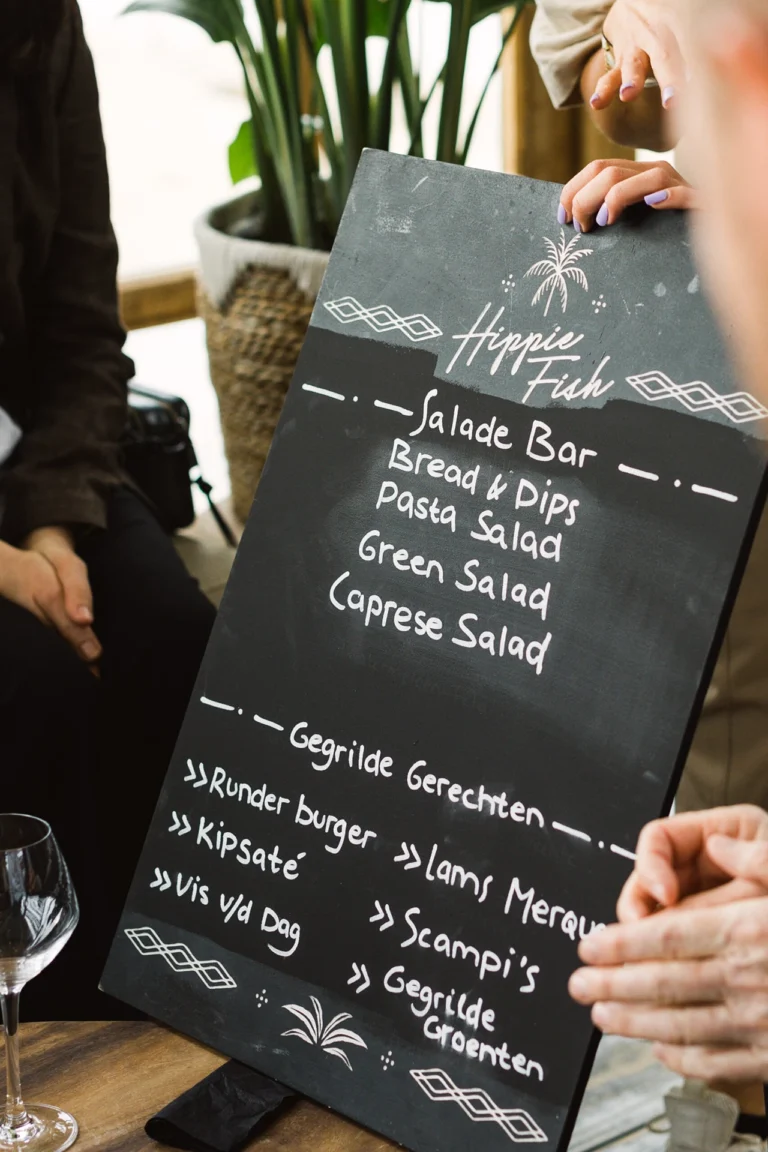 Hippie
Fish
Salade Bar
Bread & Dips
Pasta Salad
Green Salad
Caprese Salad
Gegrilde Gerechten
>> Runder burger
>> Kipsaté
>> Vis v/d Dag
>> Lams
>> Scampi's
>> Gegrilde
Groenten